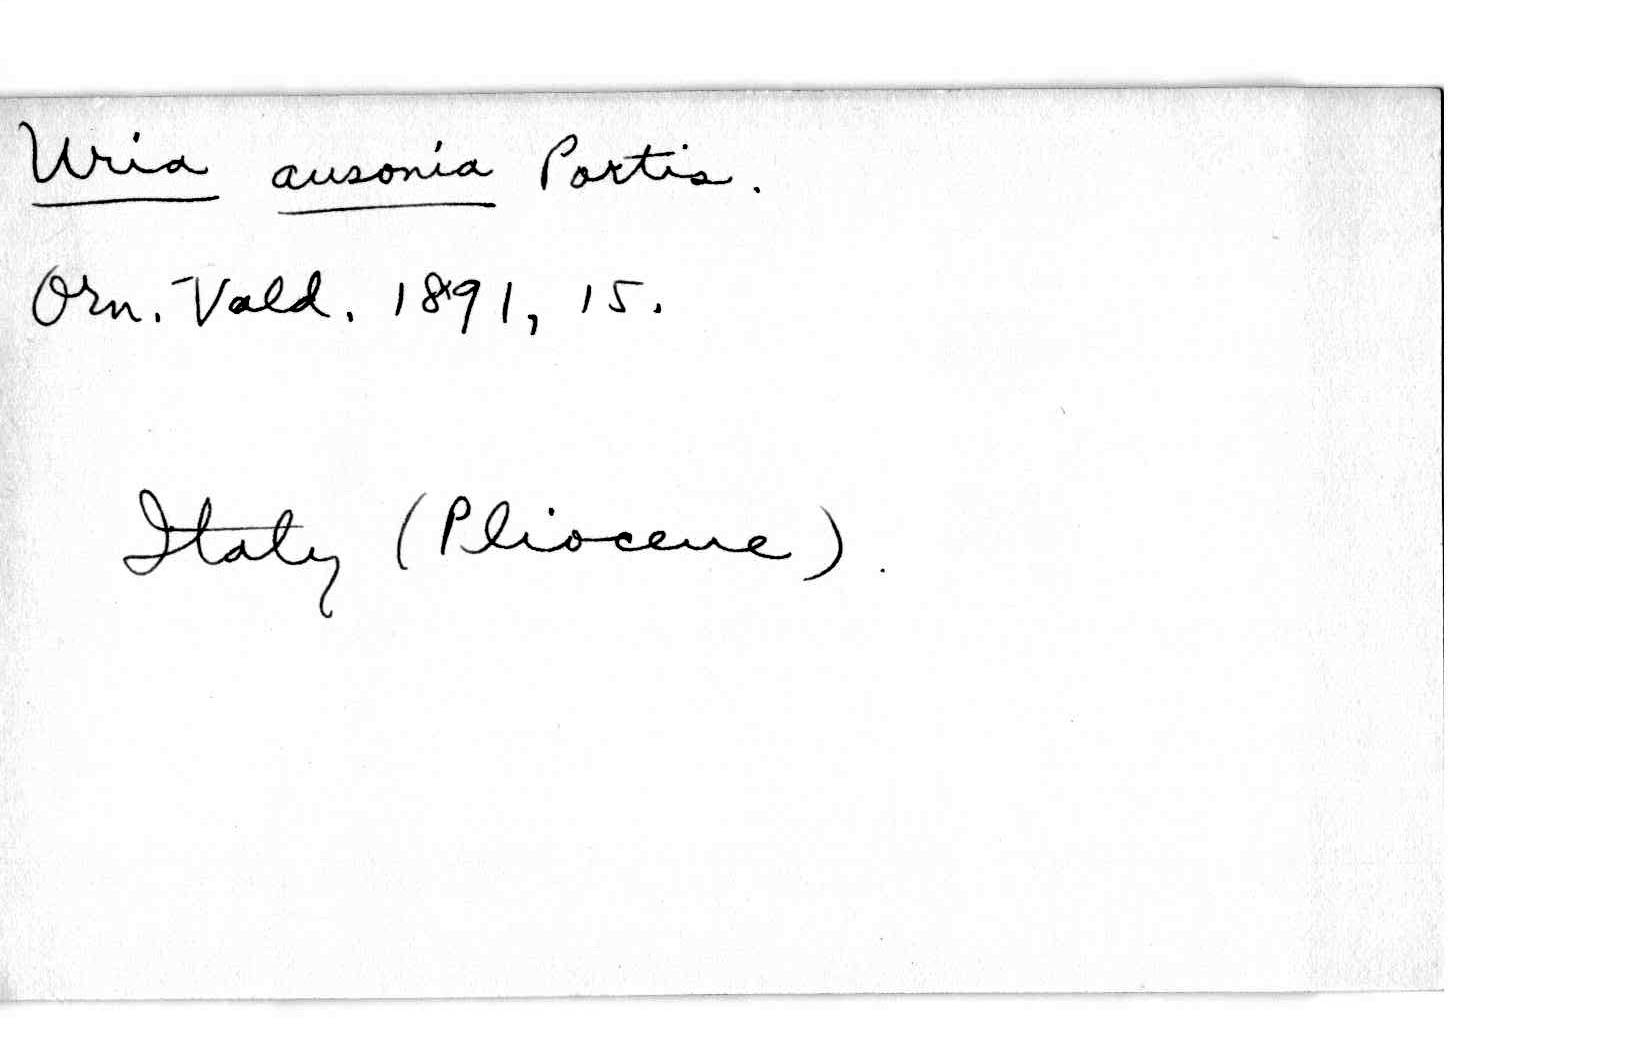 Uria ausonia Portis.
Orn. Vald. 1891, 15.
Italy (Pliocene).